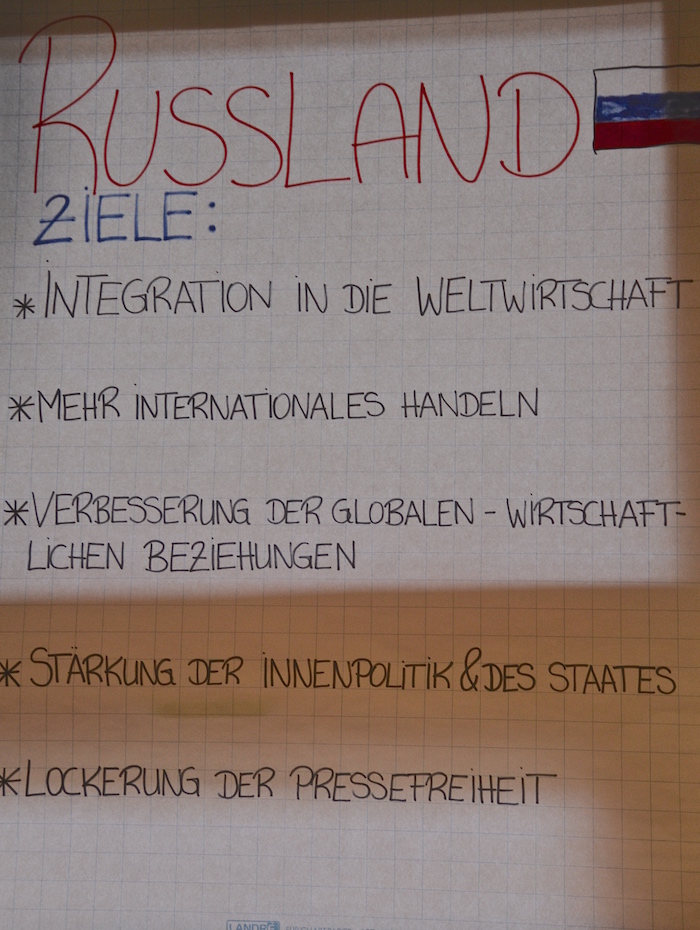 RUSSLAND
ZIELE:
* INTEGRATION IN DIE WELTWIRTSCHAFT
* MEHR INTERNATIONALES HANDELN
* VERBESSERUNG DER GLOBALEN - WIRTSCHAFT-
LICHEN BEZIEHUNGEN
* STÄRKUNG DER INNENPOLITIK & DES STAATES
* LOCKERUNG DER PRESSEFREIHEIT
LANDRÉ